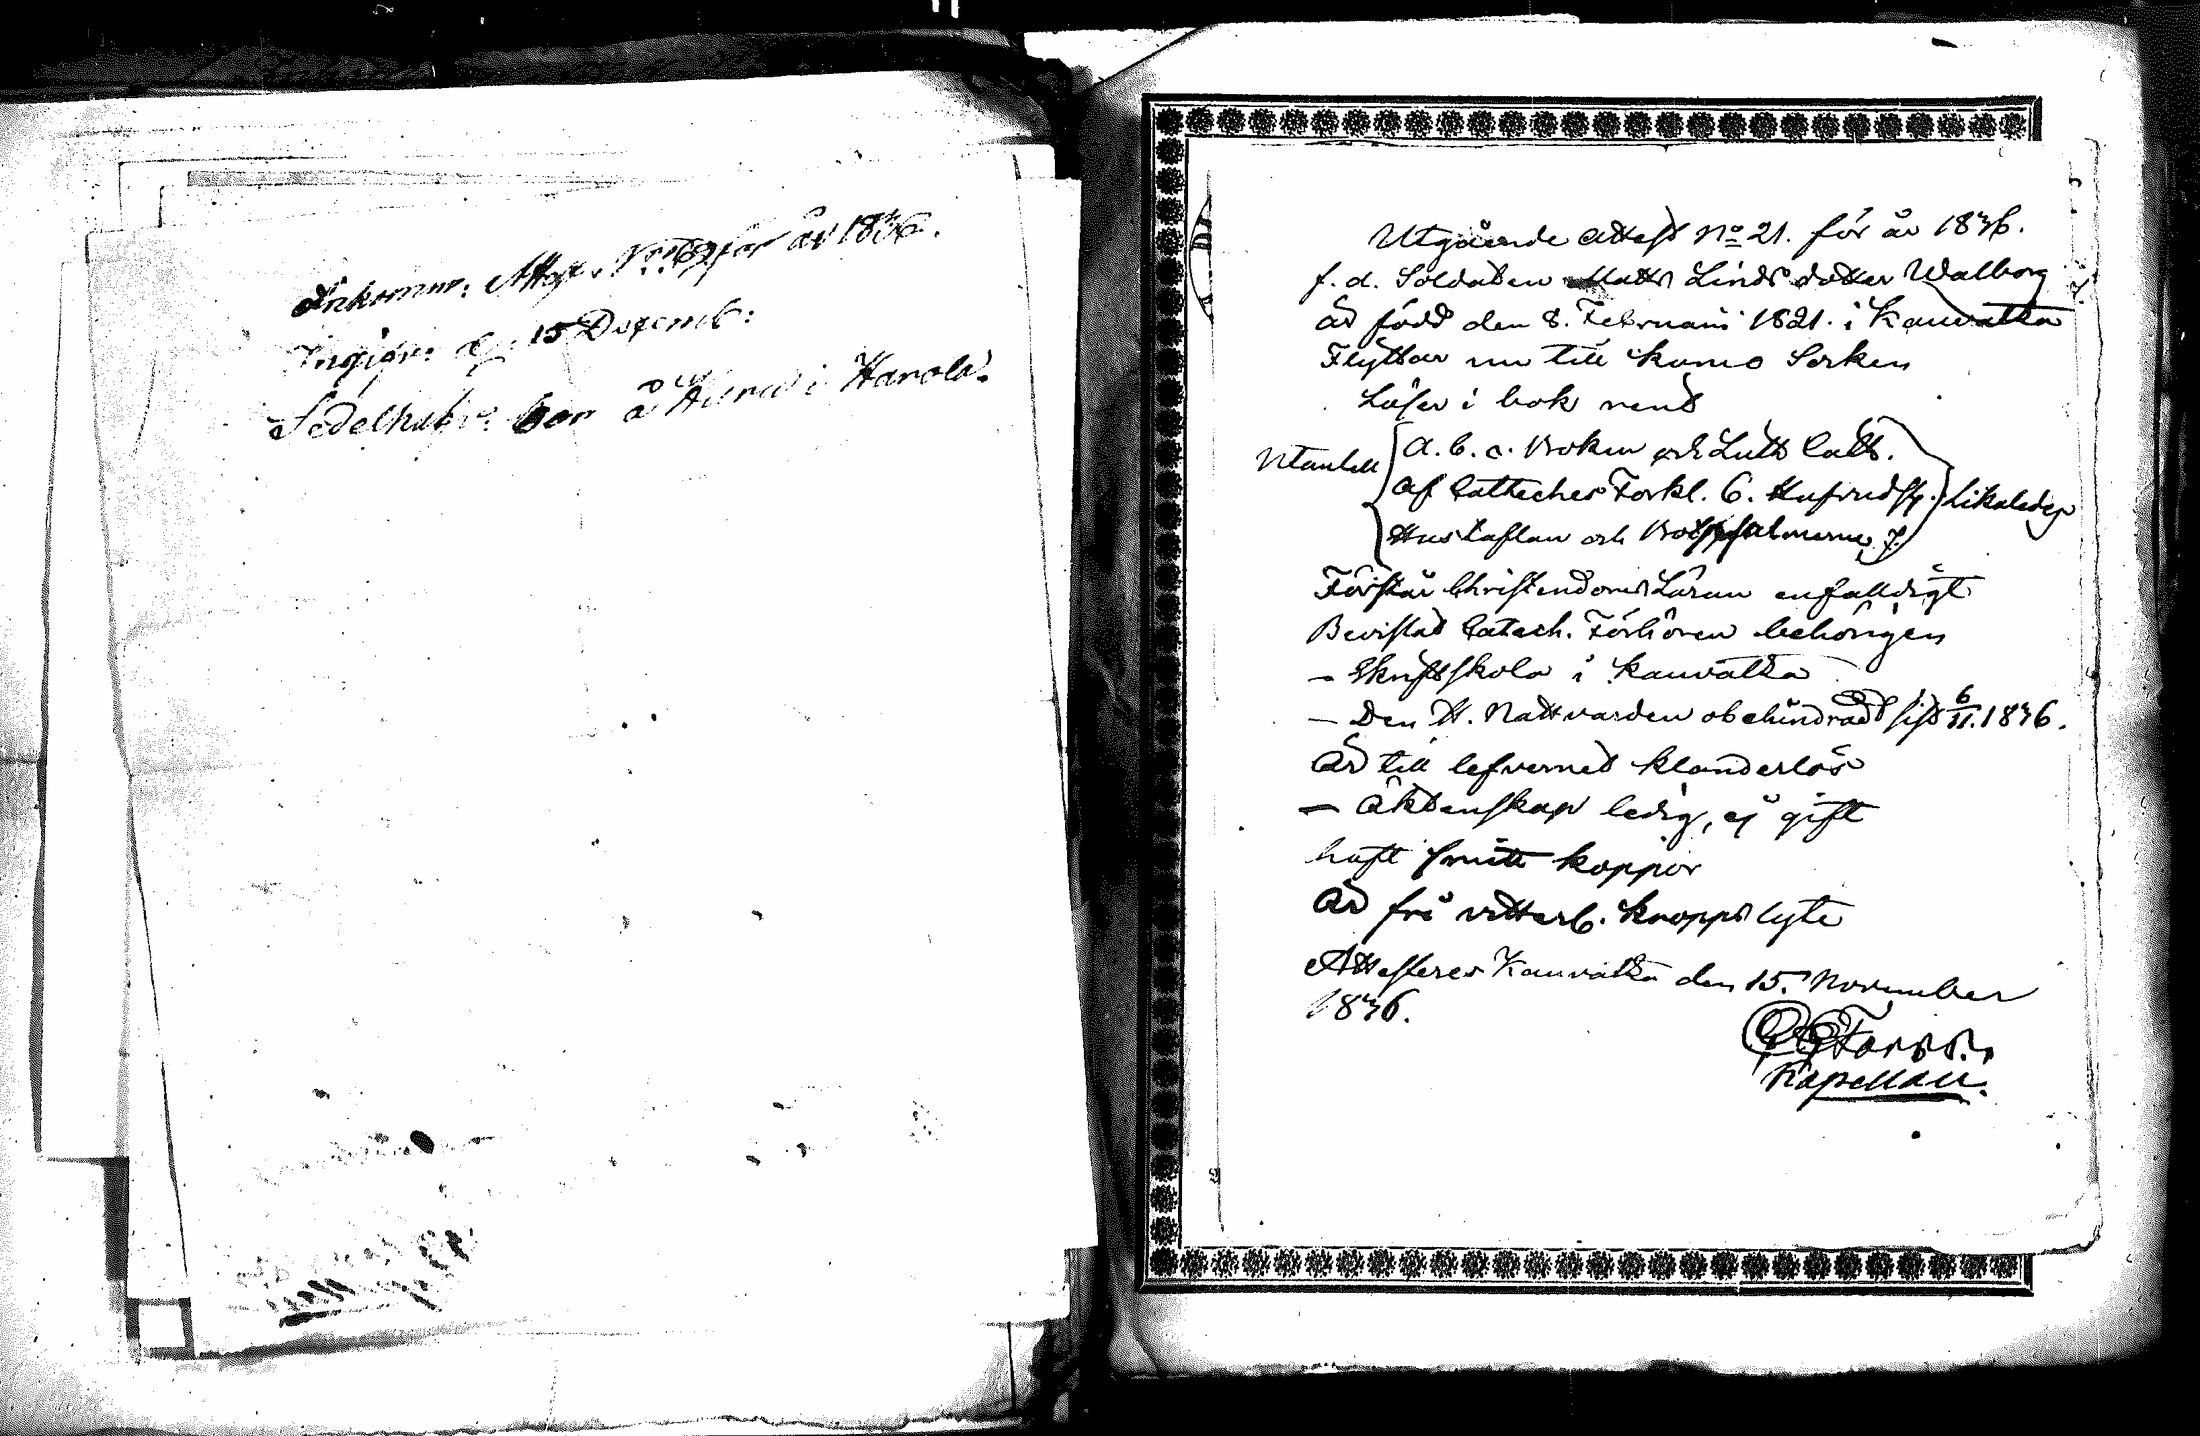 Inkomm: Attest. No: 69 for år 1836.
Ingifv: d: 15 Decemb:
Sedelhafv: bor å i Harola.
Utgående Attest No 21. för år 1836.
f. d. Soldaten Matts Linds dotter Walborg
är född den 8. Februarii 1821. i Kauvatka
Flyttar nu till Kumo Sorken
Läser i bok rent
Utantill A. b. c. Boken och Luth Cath.
Af Catheches Forkl. 6. Hufvudst. Likaledes
Hustaflan och Botpsalmerne 7.
Förstår Christendoms Läran enfalldigt
Bevistat Catech. Förhören behörigen
– Skriftskola i Kauvatka
– Den H. Nattvarden obehindradt sist 6/11. 1836.
Är till lefvernet klanderlös
– Äktenskap ledig, ej gift
haft smitt koppor
Är fri vitterl. kropps lyte
Attesteres Kauvatka den 15. November
1836.
Forss.
Kapellan.